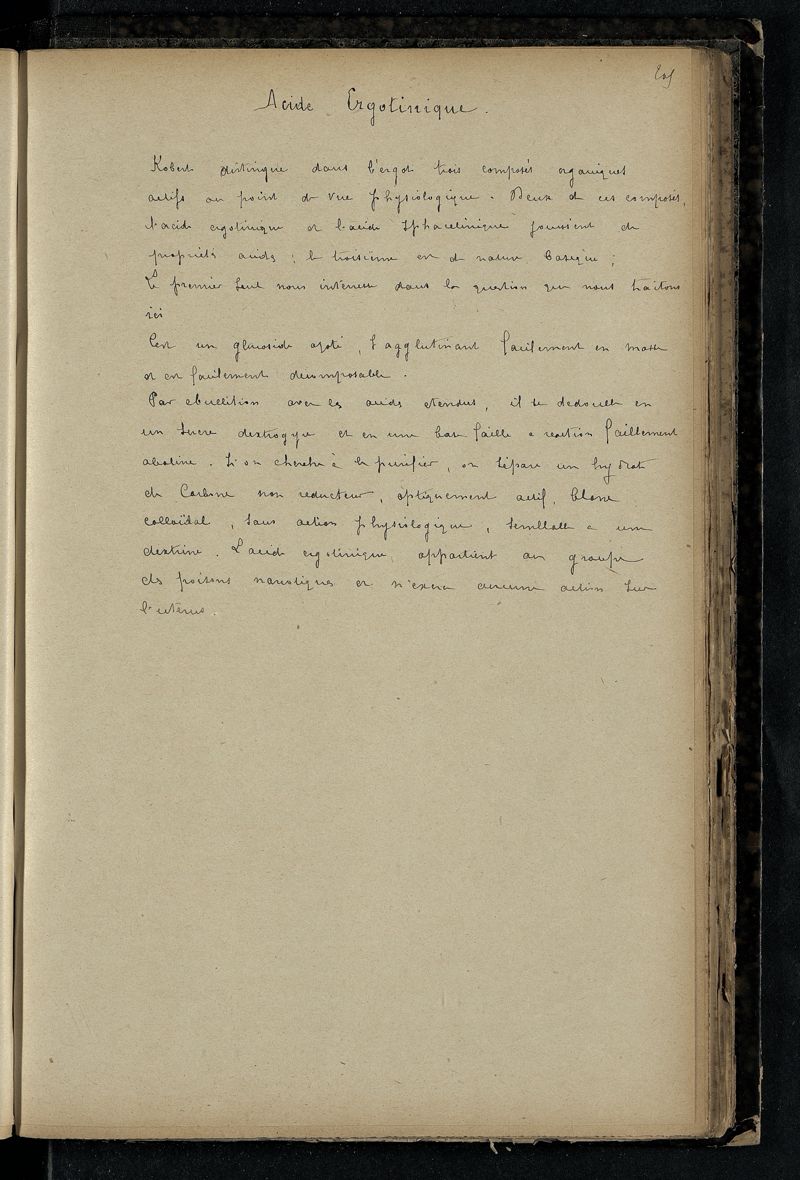 205
Acide Ergotinique.
Kobert distingue dans l'ergot trois composés organiques
actifs au point de vue physiologique. Deux de ces composés,
l'acide ergotinique et l'acide Sphacelinique jouissent de
propriétés acides ; le troisième est de nature basique ;
Le premier seul nous intéresse dans la question que nous traitons
ici
C'est un glucoside azoté, s'agglutinant facilement en masse
et est facilement decomposable.
Par ebullition avec les acides etendus, il se dedouble en
un sucre dextrogyre et en une base faible a reaction faiblement
alcaline. Si on cherche à le purifier, on sépare un hydrate
de Carbone non reducteur, optiquement actif, blanc
colloïdal, sans action physiologique, semblable a une
dextrine. L'acide ergotinique appartient au groupe
des poisons narcotiques et n'exerce aucune action sur
l'uterus.